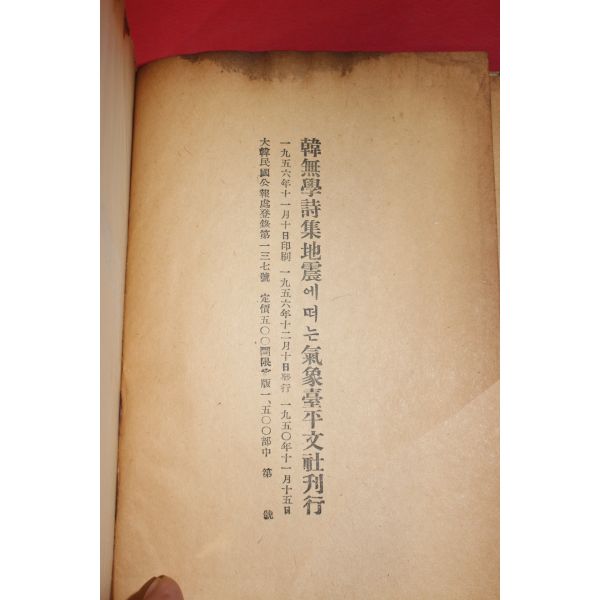 韓無學詩集地震에떠는氣象臺平文社刊行
一九五六年十一月十日印刷 一九五六年十二月十日發行 一九五〇年十一月十五日
大韓民國公報處登錄第一三七號 定價五〇〇圜限定版一、五〇〇部中 第 號